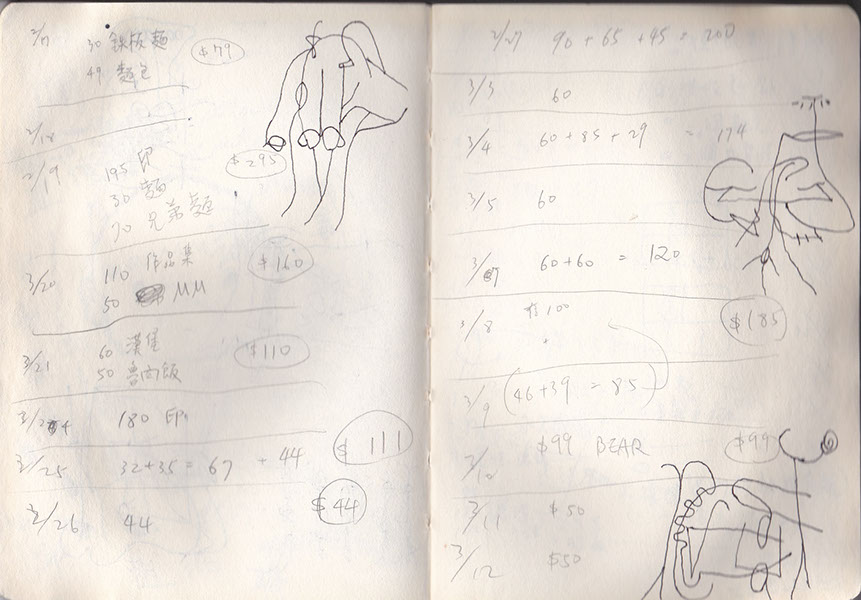 2/17 30 鉄板麵 $79
49 麵包
2/18
2/19 195 印 $295
30 麵
70 兄弟麵
3/20 110 作品集 $160
50 MM
3/21 60 漢堡 $110
50 魯肉飯
180 印
3/25 32+35 = 67 + 44 $111
2/26 44 $44
2/27 90 + 65 + 45 = 200
3/3 60
3/4 60 + 85 + 29 = 174
3/5 60
3/7 60+60 = 120
3/8 100 $185
+
3/9 (46+39 = 85)
3/10 $99 BEAR $99
3/11 $50
3/12 $50